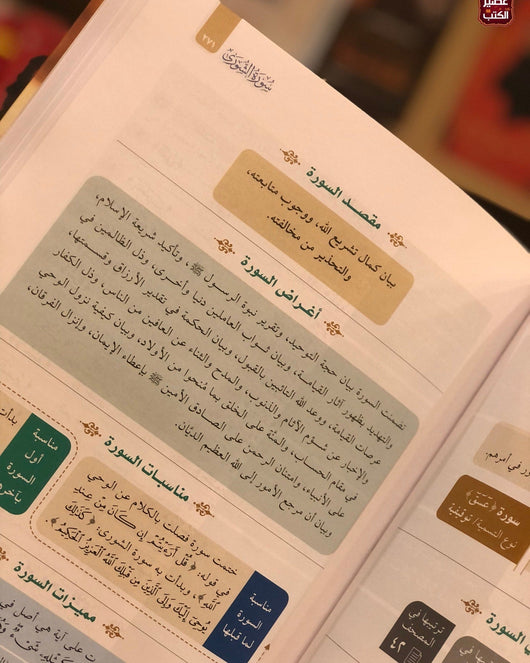 عصير
الكتب
٢٧١
سُورَةُ الشُّورَىٰ
مقصد السورة
بيان كمال تشريع الله، ووجوب متابعته،
والتحذير من مخالفته.
أغراض السورة
تضمنت السورة بيان حجة التوحيد، وتقرير نبوة الرسول ﷺ، وتأكيد شريعة الإسلام،
والتهديد بظهور آثار القيامة، وبيان ثواب العاملين دنيا وأخرى، وذل الظالمين في
عرصات القيامة، ووعد الله التائبين بالقبول، وبيان الحكمة في تقدير الأرزاق وقسمتها،
والإخبار عن شؤم الآثام والذنوب، والمدح والثناء عن العافين من الناس، وذل الكفار
في مقام الحساب، والمنة على الخلق بما مُنحوا من الأولاد، وبيان كيفية نزول الوحي
على الأنبياء، وامتنان الرحمن على الصادق الأمين ﷺ بإعطاء الإيمان، وإنزال الفرقان،
وبيان أن مرجع الأمور إلى الله العظيم الديَّان.
مناسبات السورة
مناسبة
السورة
لما قبلها
ختمت سورة فصلت بالكلام عن الوحي
في قوله: ﴿قُلْ أَرَءَيْتُمْ إِن كَانَ مِنْ عِندِ
ٱللَّهِ﴾، وبدأت به سورة الشورى: ﴿كَذَٰلِكَ
يُوحِىٓ إِلَيْكَ وَإِلَى ٱلَّذِينَ مِن قَبْلِكَ ٱللَّهُ ٱلْعَزِيزُ ٱلْحَكِيمُ﴾
مناسبة
أول
السورة
بآخرها
بدأت
مميزات السورة
ت على آية هي أصل في
ور في أمرهم.
سورة ﴿عسق﴾
نوع التسمية/ توقيفية
السورة
ترتيبها في
المصحف
٤٢